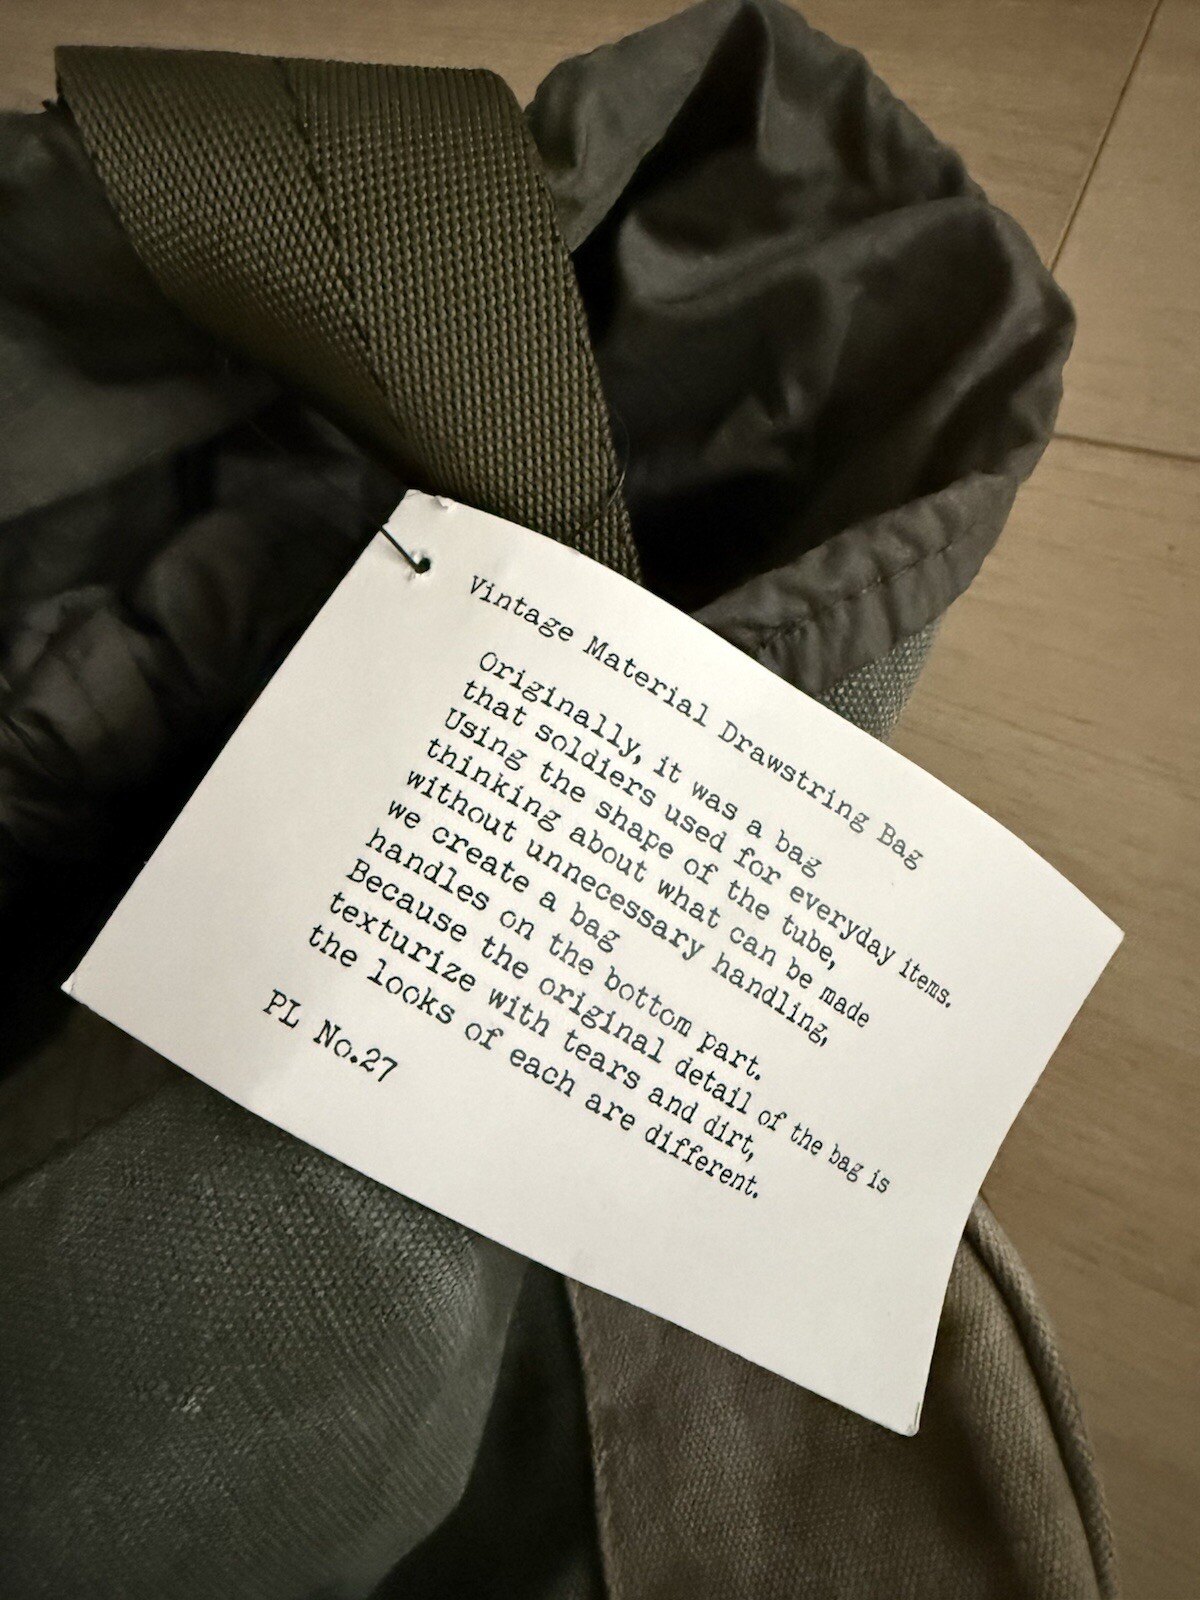 Vintage Material Drawstring Bag
Originally, it was a bag
that soldiers used for everyday items.
Using the shape of the tube,
thinking about what can be made
without unnecessary handling,
we create a bag
handles on the bottom part.
Because the original detail of the bag is
texturize with tears and dirt,
the looks of each are different.
PL No.27